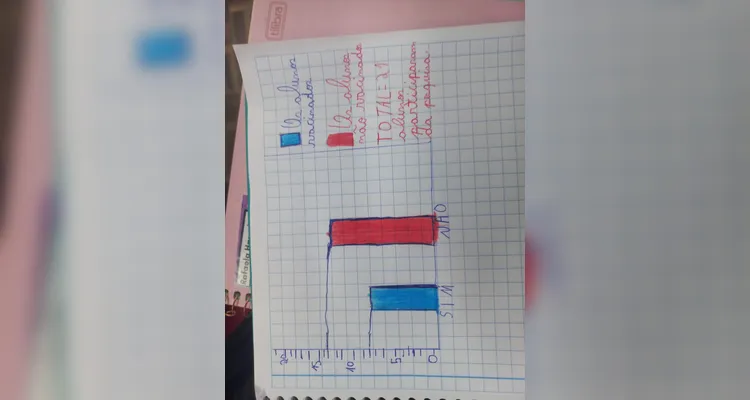 Os alunos
vacinados
Os alunos
não vacinado
TOTAL = 21
alunos
participaram
da pesquisa
20
15
10
5
0
SIM
NÃO
tilibra